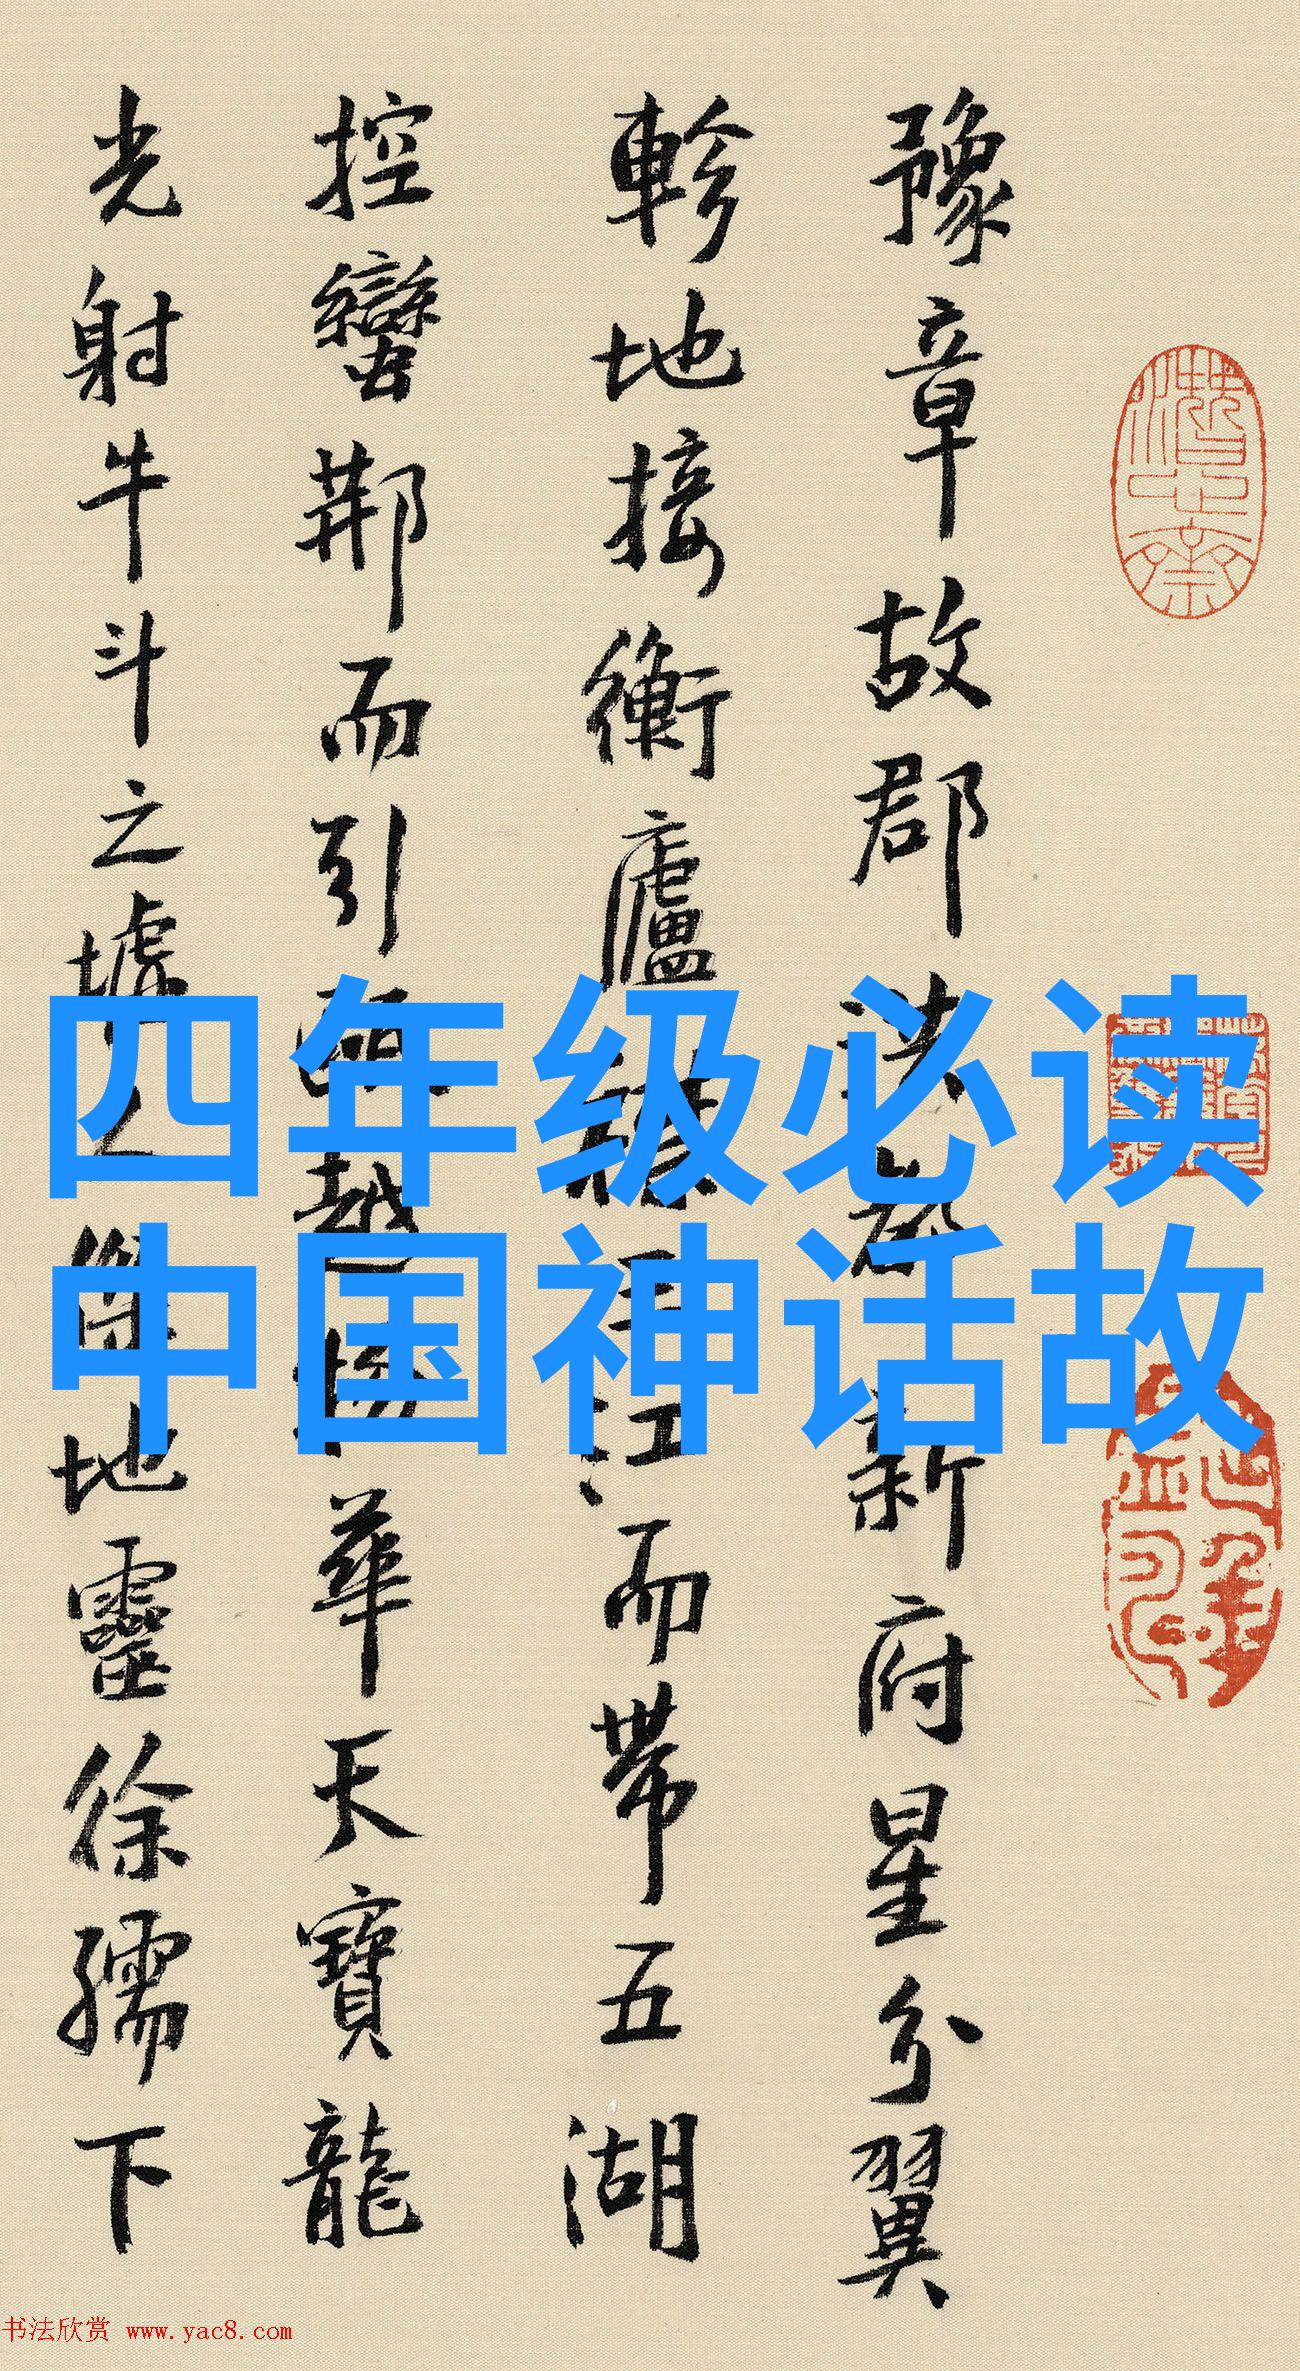 豫章故郡洪都新府星分翼
軫地接衡廬襟三江而帶五湖
控蠻荆而引甌越物華天寶龍
光射牛斗之墟人傑地靈徐孺下
四年级必读
中国神话故
书法欣赏 www.yac8.com